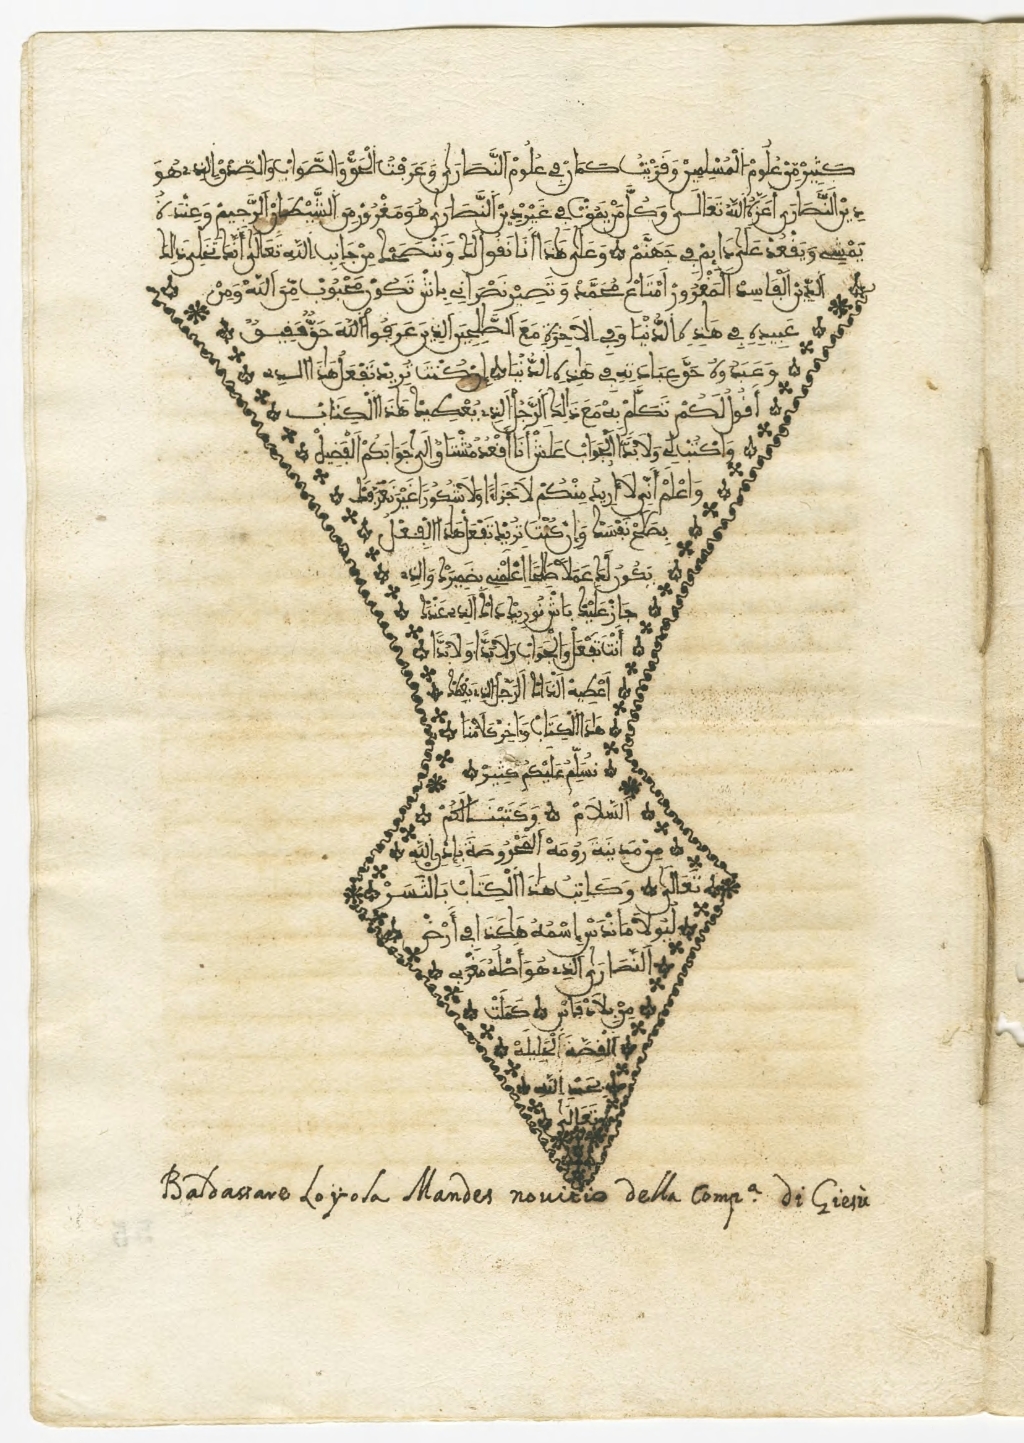 كَثِيرْ مِنْ عُلُومْ الْمُسْلِمِينْ وَقَرَيْتْ كَمَانْ فِي عُلُومْ النَّصَارَى وَعَرَفْتُ الْحَقْ وَالصَّوَابْ وَالصِّدْقْ الذِي هُوَ
دِينْ النَّصَارَى أَعَزَّهُ اللهْ تَعَالَى وَكُلْ مَنْ يَمُوتْ فِي غَيْرِ دِينْ النَّصَارَى هُوَ مَغْرُورْ مِنَ الشَّيْطَانْ الرَّجِيمْ وَعِنْدَهُ
يَمْشِي وَيَقْعُدْ عَلَى دَايِمْ فِي جَهَنَّمْ وَعَلَى هَذَا أَنَا نَقُولْ لَكْ وَنَنْصَحَكْ مِنْ جَانِبْ اللهْ تَعَالَى أَنَّكْ تَخَلِّي ذَلِكْ
الدِّينْ الْفَاسِدْ الْمَغْرُورْ امْتَاعْ مُحَمَّدْ وَتَصِيرْ نَصْرَانِي بَاشْ تَكُونْ مَحْبُوبْ مِنَ اللهْ وَمِنْ
عَبِيدِهِ فِي هَذِهِ الدُّنْيَا وَفِي الآخِرَةِ مَعَ الصَّالِحِينَ الذِينَ عَرَفُوا اللهْ حَقّ حَقِيقْ
وَعَبَدُوهُ حَقَّ عِبَادَتِهِ فِي هَذِهِ الدُّنْيَا إِنْ كُنْتَ تُرِيدْ تَفْعَلْ هَذَا الذِي
أَقُولْ لَكُمْ تَكَلَّمْ بِهْ مَعَ ذَلِكْ الرَّجُلْ الذِي يُعْطِيكْ هَذَا الْكِتَابْ
وَاكْتُبْ لِي وَلَا بُدَّ الْجَوَابْ عَلَشْ أَنَا أَقْعُدْ مُشْتَاقْ إِلَى جَوَابَكُمْ الْفَضِيلْ
وَاعْلَمْ أَنِّي لَا أُرِيدُ مِنْكُمْ لَا جَزَاءً وَلَا شُكُورًا غَيْرْ نَعَرْفَكْ
بِصَلَحْ نَفْسَكْ وَإِنْ كُنْتَ تُرِيدْ تَفْعَلْ هَذَا الْفِعْلْ
يَكُونْ لَكْ عَمَلًا صَالِحًا اعْلَمْنِي بِضَمِيرَكْ وَالذِي
جَازْ عَلِيكْ بَاشْ نُورِيكْ ذَلِكْ الذِي عَنْدَكْ
أَنْتَ تَفْعَلْ وَالْجَوَابْ وَلَا بُدَّ وَلَا بُدَّ
أَعْطِيهْ الْذَلِكْ الرَّجُلْ الذِي يَعْطِكْ
هَذَا الْكِتَابْ وَآخِرْ كَلَامْنَا
نُسَلِّمْ عَلَيْكُمْ كَثِيرْ
السَّلَامْ وَكَتَبْنَا لَكُمْ
مِنْ مَدِينَةْ رُومَهْ الْمَحْرُوصَةْ بِإِذْنِ اللهِ
تَعَالَى وَكَاتِبْ هَذَا الْكِتَابْ بَالتَّسَرْ
لُيُولَا مَانْدَسْ اِسْمُهُ هَكَذَا فِي أَرْضْ
النَّصَارَى الذِي هُوَ أَصْلُهُ مَغْرَبِي
مِنْ بِلَادْ فَاسْ كَمَلَتْ
الْقِصَّةْ الْجَلِيلَةْ
بِحَمْدِ اللهِ
تَعَالَى
Baldassare Loyola Mandes novitio della Comp.ª di Giesù